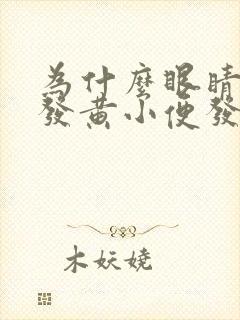 為什麼眼睛
發黃小便發
木妖嬈